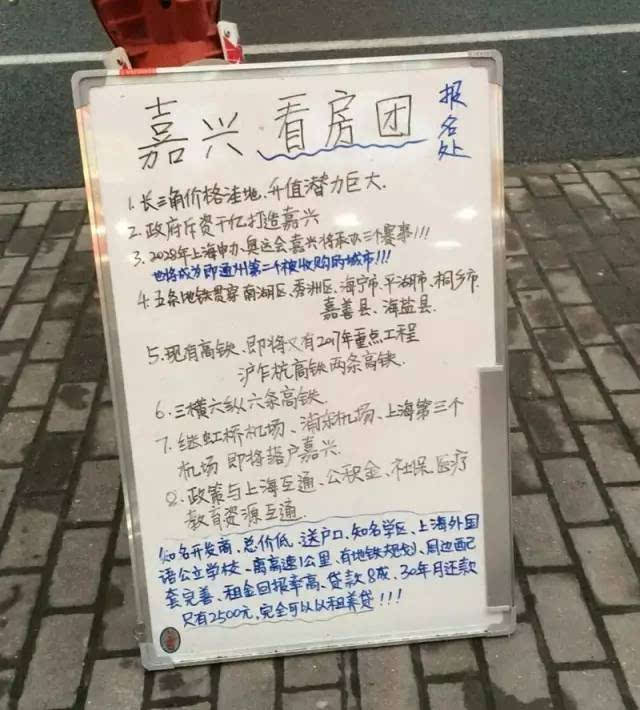 嘉兴看房团
报名处
1. 长三角价格洼地、升值潜力巨大
2. 政府斥资千亿打造嘉兴
3. 2028年上海申办奥运会嘉兴将承办三个赛事!!!
也将成为即通州第二个被收购的城市!!!
4. 五条地铁贯穿南湖区、秀洲区、海宁市、平湖市、桐乡市
嘉善县、海盐县.
5. 现有高铁、即将又有2017年重点工程
沪乍杭高铁两条高铁.
6. 三横六纵六条高铁
7. 继虹桥机场、浦东机场、上海第三个
机场即将落户嘉兴
8. 政策与上海互通、公积金、社保、医疗
教育资源互通.
知名开发商、总价低、送户口、知名学区、上海外国
语公立学校、离高速1公里、有地铁规划、周边配
套完善、租金回报率高、贷款8成、30年月还款
只有2500元,完全可以以租养贷!!!